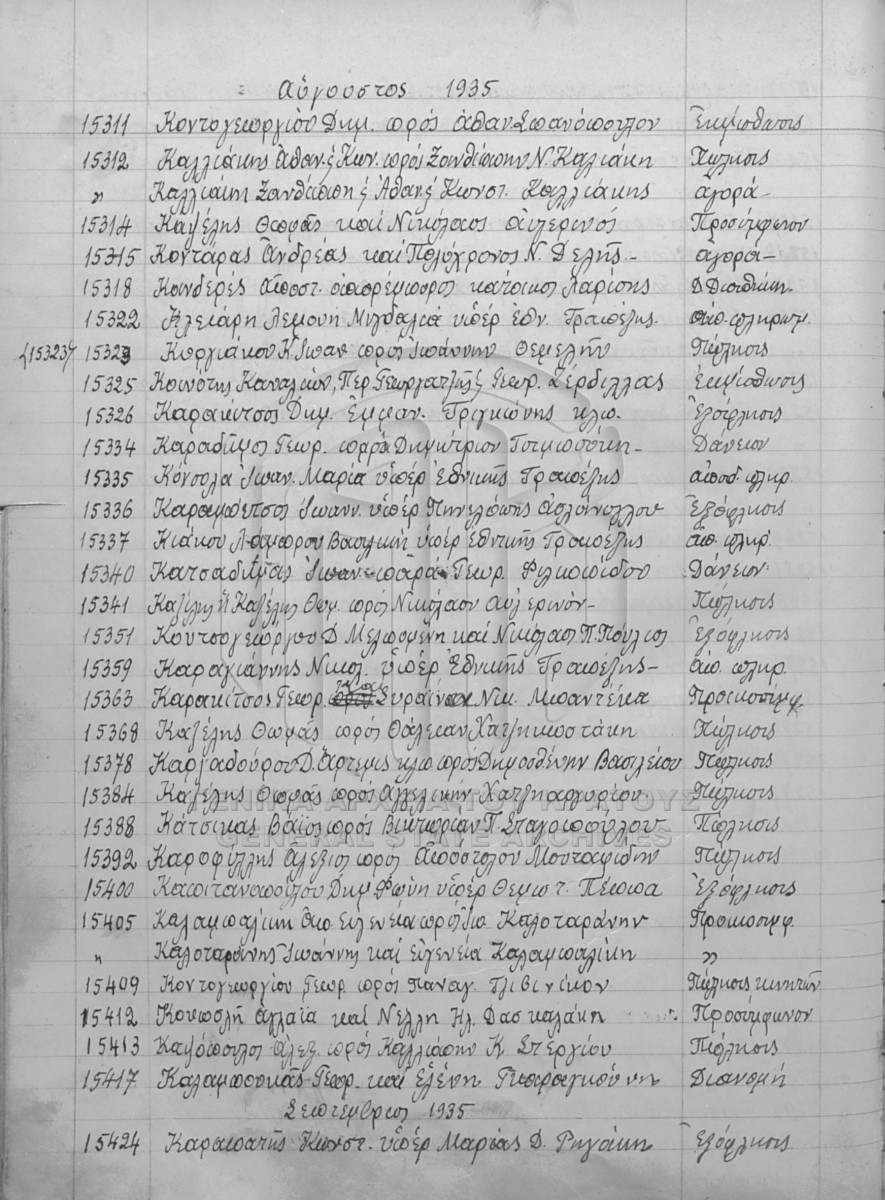 Αὔγουστος 1935
15311 Κοντογεωργίου Δημ. πρός Ἀθαν. Σπανόπουλον Ἐκμίσθωσις
15312 Καλλιάκης Ἀθαν. & Κων. πρός Ξανθίππην Ν. Καλιάκη Πώλησις
" Καλλιάκη Ξανθίππη & Ἀθαν. & Κωνστ. Καλλιάκης ἀγορά-
15314 Καζέλης Θωμᾶς καί Νικόλαος Αὐγερινός Προσύμφωνον
15315 Κοντάρας Ἀνδρέας καί Πολύχρονος Ν. Δελῆς - ἀγορά-
15318 Κονδερές Ἀποστ. κάτοικος Λαρίσης Διαθήκη
15322 Λεμονή ὑπέρ Ἐθν. Τραπέζης ἀπ. πληρωμ.
{15323} 15323 Κ. Ἰωαν πρός Ἰωάννην Θεμελῆν Πώλησις
15325 Κοινότης Καναλίων, Περ. Γεωργατζῆς & Γεωρ. Ζέρδιλλας ἐκμίσθωσις
15326 Καρακίτσος Δημ. Ἐμμαν. κλπ. Ἐξόφλησις
15334 Καραδῆμος Γεωρ. παρά Δημητρίου - Δάνειον
15335 Κόνσολα Ἰωαν. Μαρία ὑπέρ Ἐθνικῆς Τραπέζης ἀποδ. πληρ.
15336 Καραμπέτσος Ἰωανν. ὑπέρ Πηνελόπης Ἐξόφλησις
15337 Κιάκου Λάμπρου Βασιλική ὑπέρ Ἐθνικῆς Τραπέζης ἀπ. πληρ.
15340 Κατσαδήμας Ἰωαν παρά Γεωρ. Φιλιππίδου Δάνειον
15341 Καζέλης ἤ Καζέλης Θωμ. πρός Νικόλαον Αὐγερινόν - Πώλησις
15351 Κουτσογεώργου Δ Μελπομένη καί Νικόλαος Π. Πούλιος Ἐξόφλησις
15359 Καραγιάννης Νικολ. ὑπέρ Ἐθνικῆς Τραπέζης - ἀπ. πληρ.
15363 Καρακίτσος Γεωρ. καί Συραίνα Νικ. Μπαντέκα Προικοσύμφ.
15368 Καζέλης Θωμᾶς πρός Θάλειαν Χατζηκωστάκη Πώλησις
15378 Καρδαδούρου Δ. Ἄρτεμις κλπ πρός Δημοσθένην Βασιλείου Πώλησις
15384 Καζέλης Θωμᾶς πρός Ἀγγελικήν Χατζηαργυρίου. Πώλησις
15388 Κάτσικας Βάϊος πρός Βικτωρίαν Π. Σταγοπούλου Πώλησις
15392 Καροφύλλης Ἀλέξιος πρός Ἀπόστολον Μουταφίδην Πώλησις
15400 Καπιτανοπούλου Δημ Φωνή ὑπέρ Θεμιστ. Πέππα Ἐξόφλησις
15405 Καλαμπαλίκη Ἀπ. Εὐγενεία πρός Ἰω. Καλοταράνην Προικοσυμφ.
" Καλοταράνης Ἰωάννης καί Εὐγενεία Καλαμπαλίκη "
15409 Κοντογεωργίου Γεωρ πρός Παναγ. Γλιβινίκον Πώλησις κινητῶν
15412 Κουπολῆ Ἀγλαΐα καί Νέλλη Ἠλ. Δασκαλάκη Προσύμφωνον
15413 Καζόπουλος Ἀλεξ. πρός Καλλιόπην Κ. Στεργίου Πώλησις
15417 Καλαμπουκᾶς Γεωρ. καί Ἑλένη Διανομή
Σεπτέμβριος 1935
15424 Καραπατῆς Κωνστ. ὑπέρ Μαρίας Δ. Ρηγάκη Ἐξόφλησις
ΓΕΝΙΚΑ ΑΡΧΕΙΑ ΤΟΥ ΚΡΑΤΟΥΣ
GENERAL STATE ARCHIVES